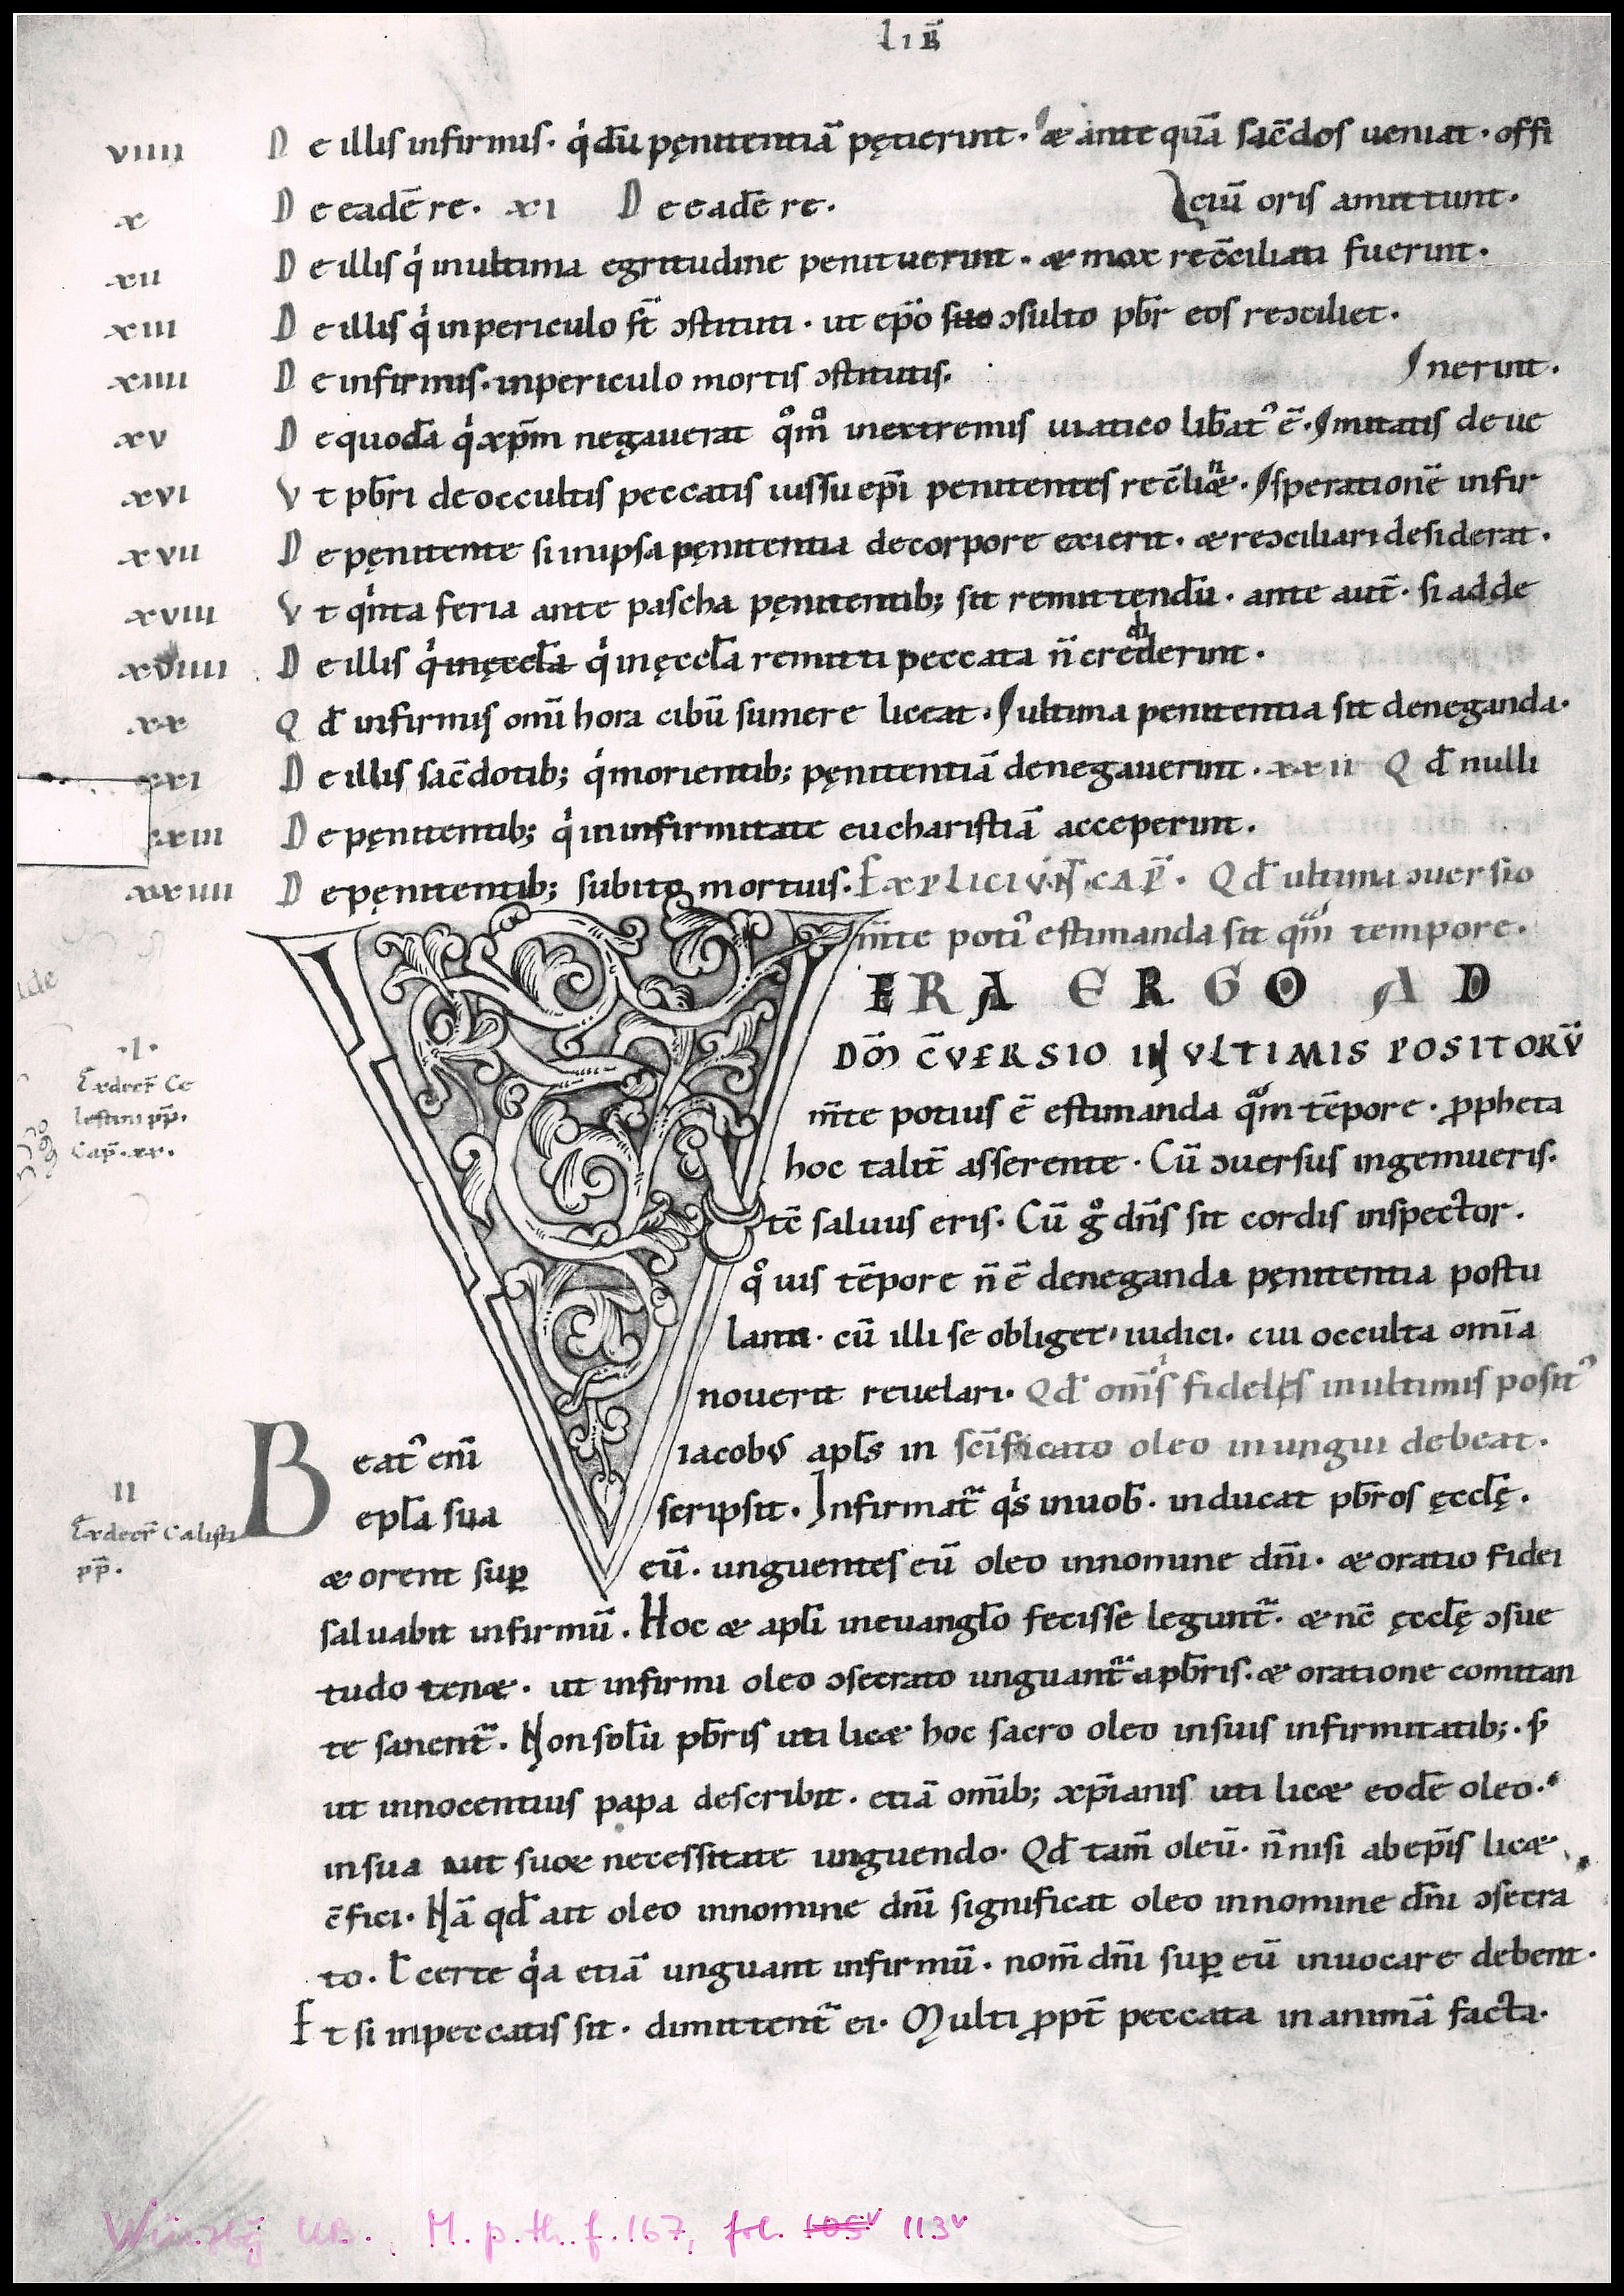 LIB̄
VIIII De illis infirmis. q̍ dū pęnitentiā pętierint. & ante quā sac̄dos ueniat. offi
X De eadē re. XI De eadē re. ciū oris amittunt.
XII De illis q̍ in ultima egritudine penituerint. & mox rec̄ciliati fuerint.
XIII De illis q̍ in periculo st̄ ↄstituti. ut ep̄o suo ↄsulto pb̄r eos reↄciliet.
XIIII De infirmis. in periculo mortis ↄstitutis. nerint.
XV De quodā q̍ xp̄m negauerat qͦmͦ in extremis uiatico lib̄atꝰ ē. mitatis deue
XVI Vt pb̄ri de occultis peccatis iussu ep̄i penitentes rec̄liāⁿ&. speratione infir
XVII De pęnitente si in ipsa pęnitentia de corpore exierit. & reↄciliari desiderat.
XVIII Vt q̍nta feria ante pascha pęnitentib; sit remittendū. ante aut̄. si adde
XVIIII De illis q̍ inęccl̄a q̍ in ęccl̄a remitti peccata n̄ crediderint.
XX Qd̄ infirmis omī hora cibū sumere liceat. ultima penitentia sit deneganda.
XXI De illis sac̄dotib; q̍ morientib; pęnitentiā denegauerint. XXII Qd̄ nulli
XXIII De pęnitentib; q̍ in infirmitate eucharistiā acceperint.
XXIIII De pęnitentib; subito mortuis. EXPLICIVNT CAP̄. Qd̄ ultima ↄuersio
m̄te potiꝰ estimanda sit qͣm tempore.
VERA ERGO AD
DŌM C̄VERSIO IN VLTIMIS POSITORV̄
m̄te potius ē estimanda qͣm tēpore. ꝓpheta
.I.
Ex decr̄ Ce
lestini pp̄.
Cap̄. xx.
hoc talit̄ asserente. Cū ↄuersus ingemueris.
tc̄ saluus eris. Cū gͦ dn̄s sit cordis inspector.
qͦ uis tēpore n̄ ē deneganda pęnitentia postu
lanti. cū illi se obliget iudici. cui occulta omīa
nouerit reuelari. Qd̄ om̄s fideles in ultimis positꝰ
Beatꝰ enī iacobꝰ apl̄s in sc̄ificato oleo inungui debeat.
II
Ex decr̄ Calisti
pp̄.
epl̄a sua scripsit. Infirmat᷑ q̍s in uob̄. inducat pb̄ros ęccl̄ę.
& orent suꝑ eū. unguentes eū oleo in nomine dn̄i. & oratio fidei
saluabit infirmū. Hoc & apl̄i in euangl̄o fecisse legunt᷑. & nc̄ ęccl̄ę ↄsue
tudo ten&. ut infirmi oleo ↄsecrato unguant᷑ a pb̄ris. & oratione comitan
te sanent᷑. Non solū pb̄ris uti lic& hoc sacro oleo in suis infirmitatib;. s̄
ut innocentius papa describit. etiā omīb; xp̄ianis uti lic& eodē oleo.
in sua aut suoꝝ necessitate unguendo. Qd̄ tam̄ oleū. n̄ nisi ab ep̄is lic&
c̄fici. Nā qd̄ ait oleo in nomine dn̄i significat oleo in nomine dn̄i ↄsecra
to. l̄ certe q̍a etiā unguant infirmū. nom̄ dn̄i suꝑ eū inuocare debent.
Et si in peccatis sit. dimittent᷑ ei. Multi ꝓpt̄ peccata in animā facta.
Würzbg UB., M. p. th. f. 167, fol. 105v 113v